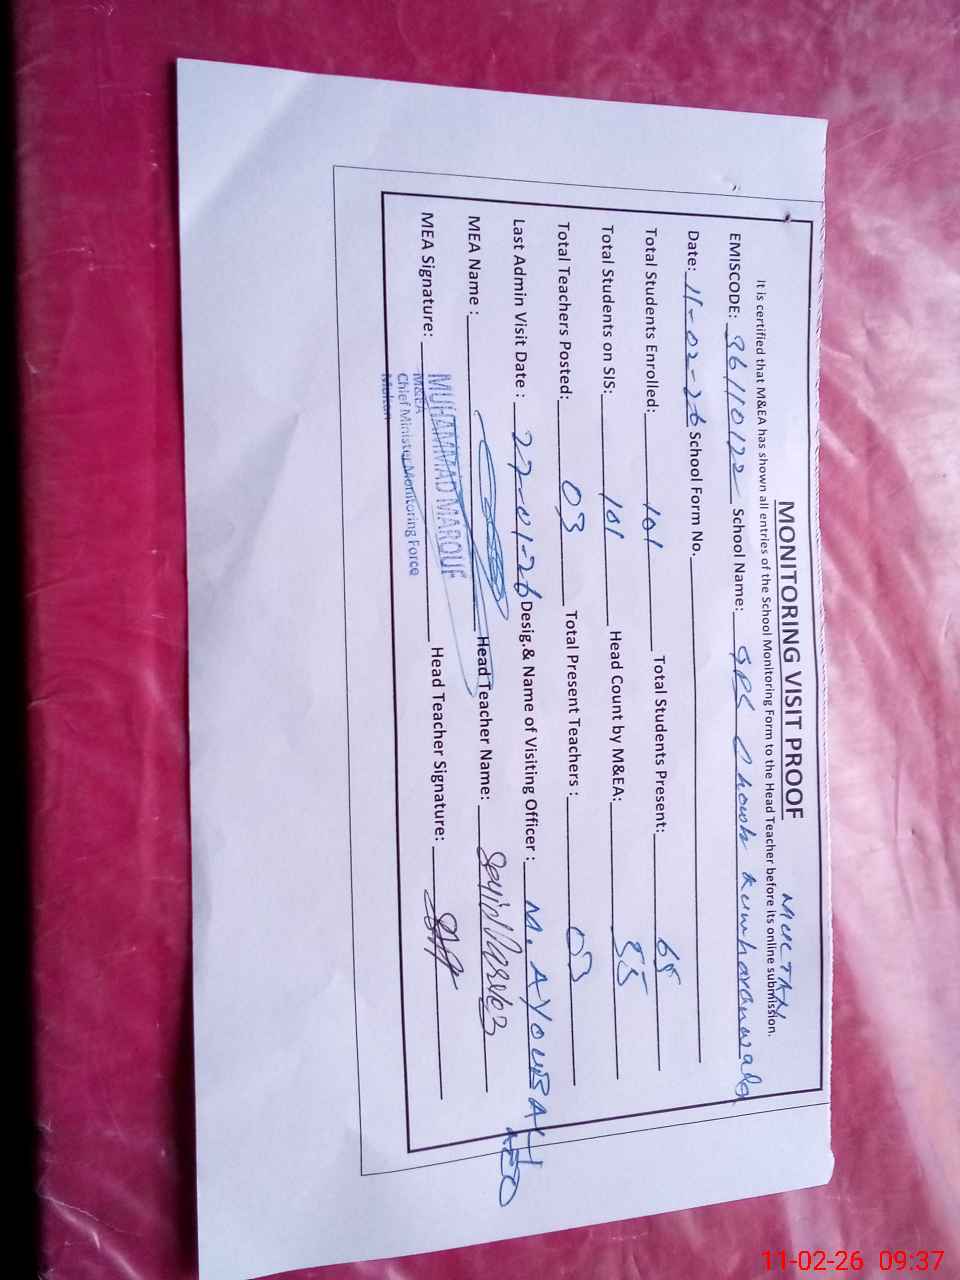 MONITORING VISIT PROOF MULTAN
It is certified that M&EA has shown all entries of the School Monitoring Form to the Head Teacher before its online submission.
EMISCODE: 36110122 School Name: GPS Chowk Kumharanwala
Date: 11-02-26 School Form No.
Total Students Enrolled: 101 Total Students Present: 68
Total Students on SIS: 101 Head Count by M&EA: 55
Total Teachers Posted: 03 Total Present Teachers : 03
Last Admin Visit Date : 27-01-26 Desig.& Name of Visiting Officer : M. AYOUB
AEO
MEA Name : Head Teacher Name: Parvez
MEA Signature: Head Teacher Signature:
MUHAMMAD MAROUF
M&EA
Chief Minister Monitoring Force
Multan
11-02-26 09:37